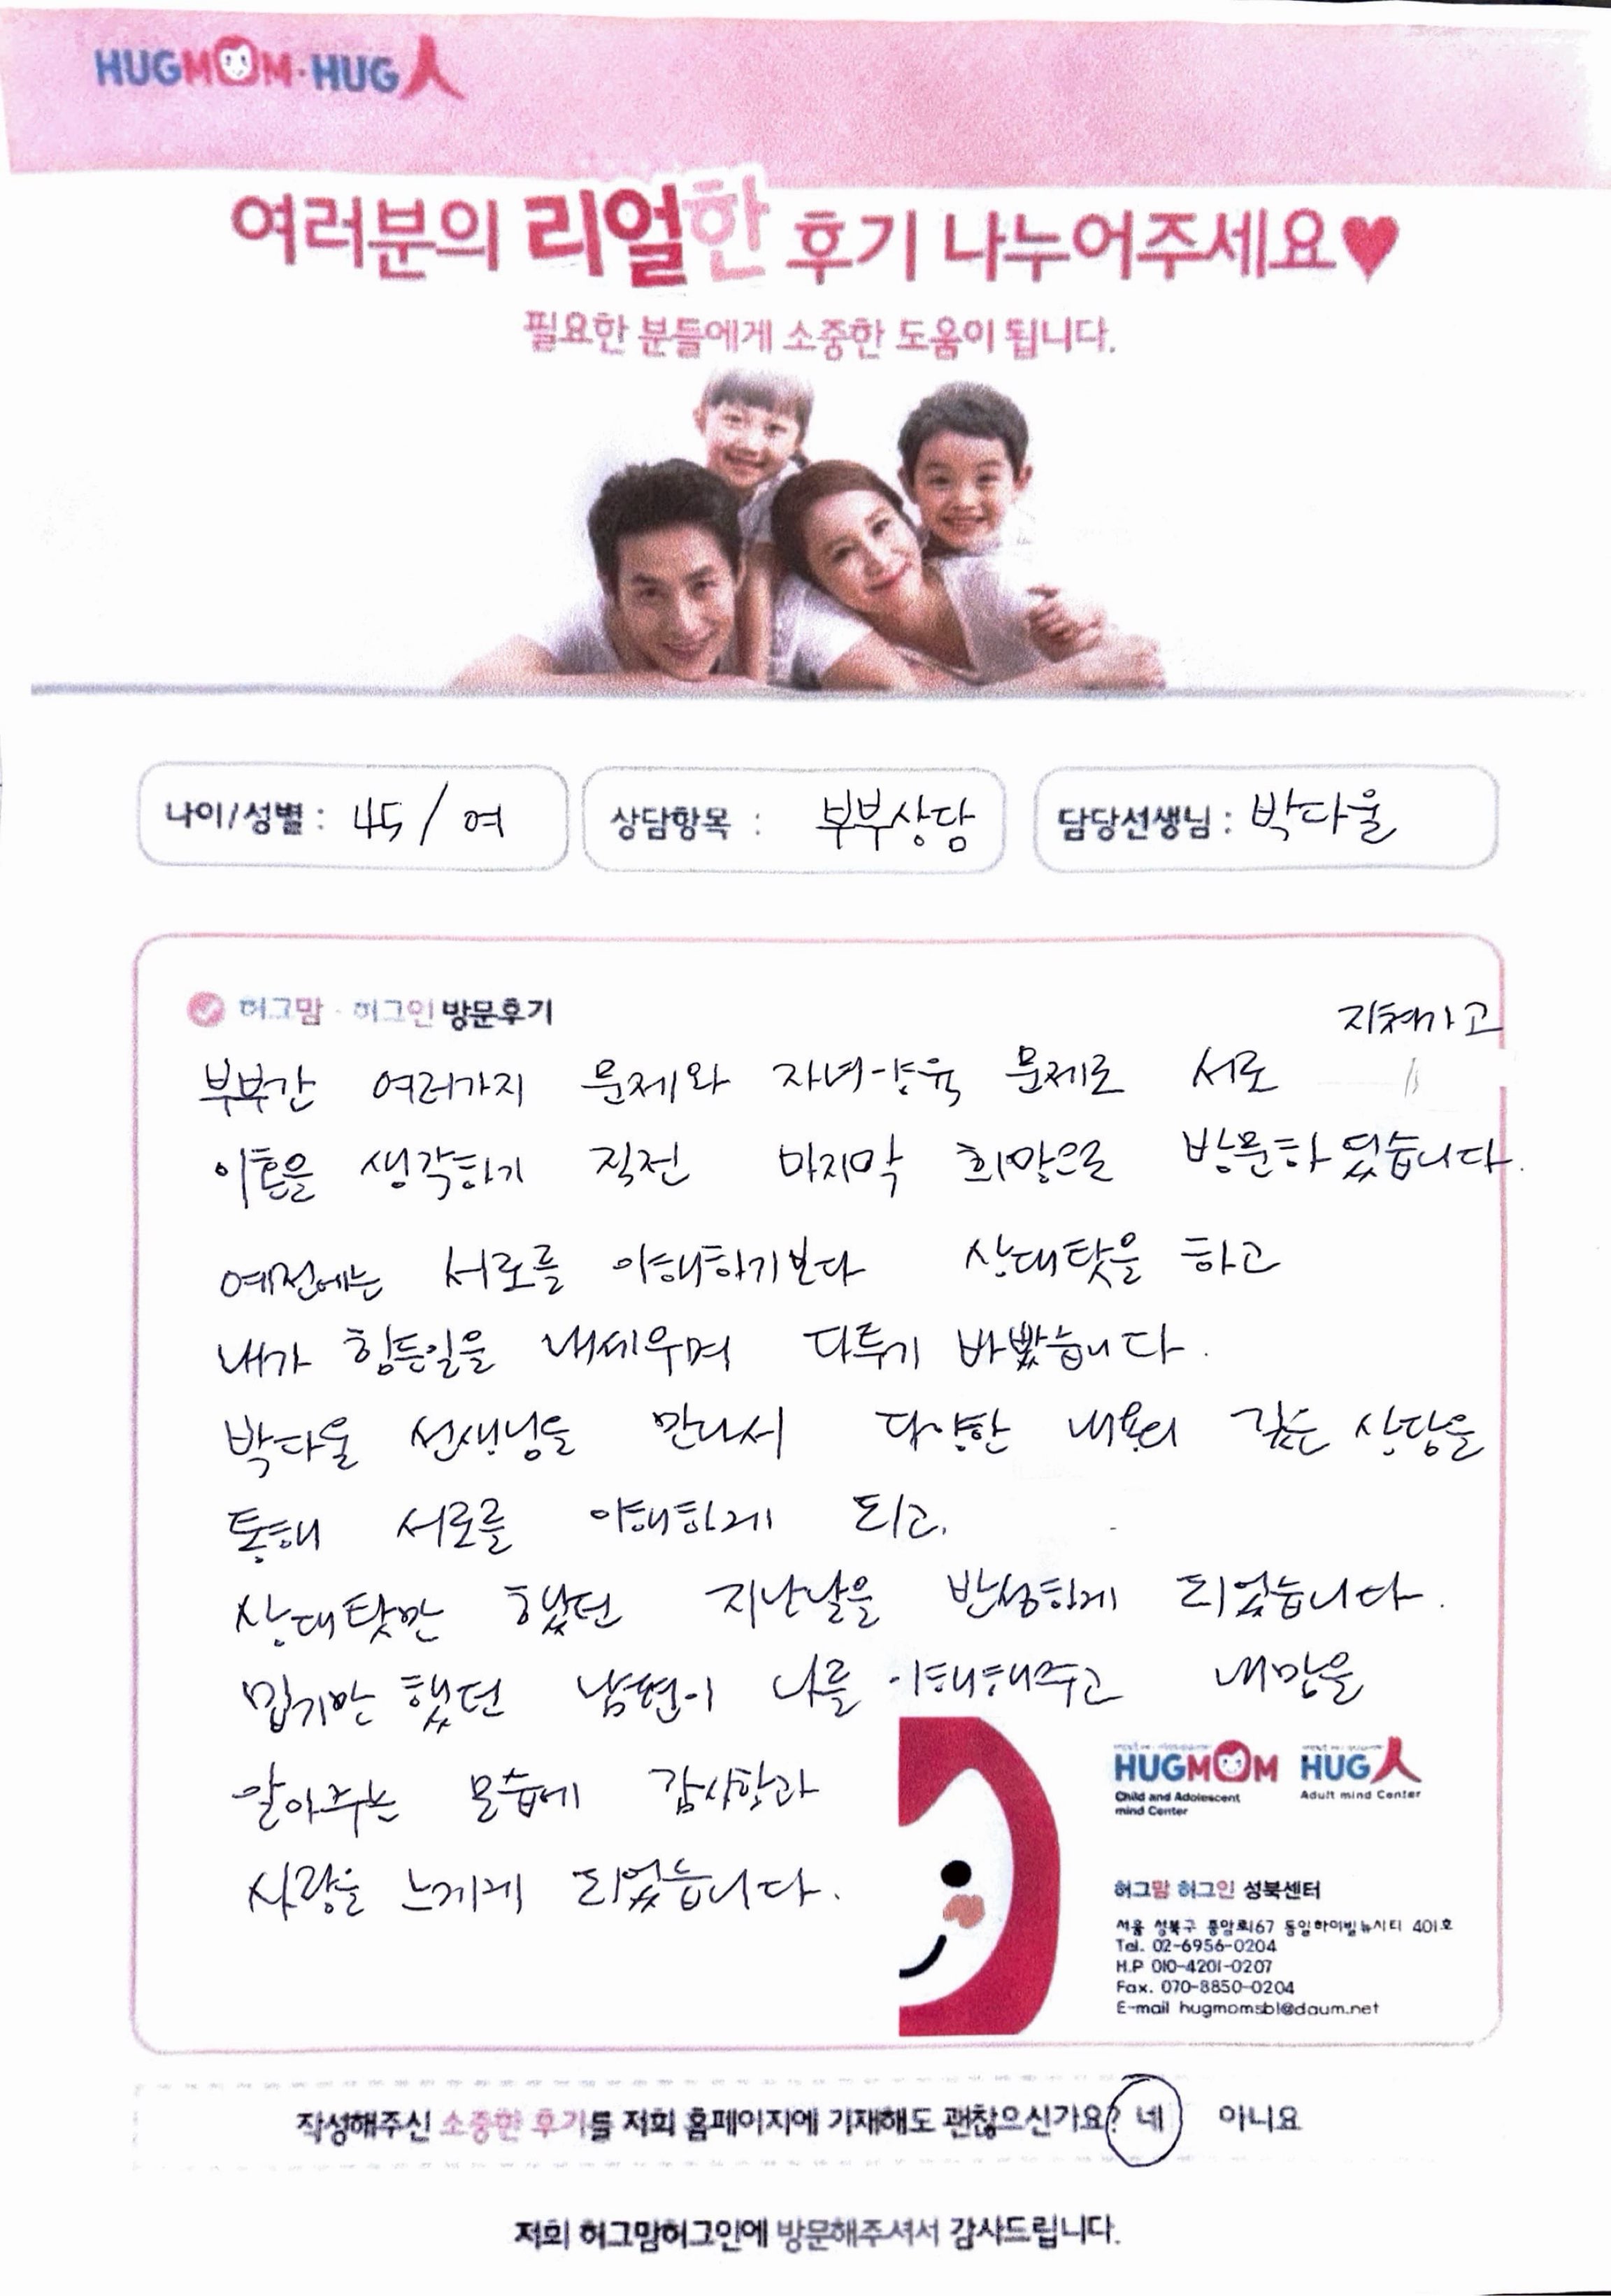 HUGMOM·HUG人
여러분의 리얼한 후기 나누어주세요♥
필요한 분들에게 소중한 도움이 됩니다.
나이/성별 : 45 / 여
상담항목 : 부부상담
담당선생님 : 박다울
허그맘 · 허그인 방문후기
지쳐가고
부부간 여러가지 문제와 자녀양육 문제로 서로
이혼을 생각하기 직전 마지막 희망으로 방문하였습니다.
예전에는 서로를 이해하기보다 상대탓을 하고
내가 힘든일을 내세우며 다투기 바빴습니다.
박다울 선생님을 만나서 다양한 내용의 깊은 상담을
통해 서로를 이해하게 되고.
상대탓만 했던 지난날을 반성하게 되었습니다.
밉기만 했던 남편이 나를 이해해주고 내맘을
알아주는 모습에 감사함과
사랑을 느끼게 되었습니다.
HUGMOM HUG人
Child and Adolescent mind Center
Adult mind Center
허그맘 허그인 성북센터
서울 성북구 종암로167 동일하이빌뉴시티 401호
Tel. 02-6956-0204
H.P 010-4201-0207
Fax. 070-8850-0204
E-mail hugmomsb1@daum.net
작성해주신 소중한 후기를 저희 홈페이지에 기재해도 괜찮으신가요? 네 아니요
저희 허그맘허그인에 방문해주셔서 감사드립니다.